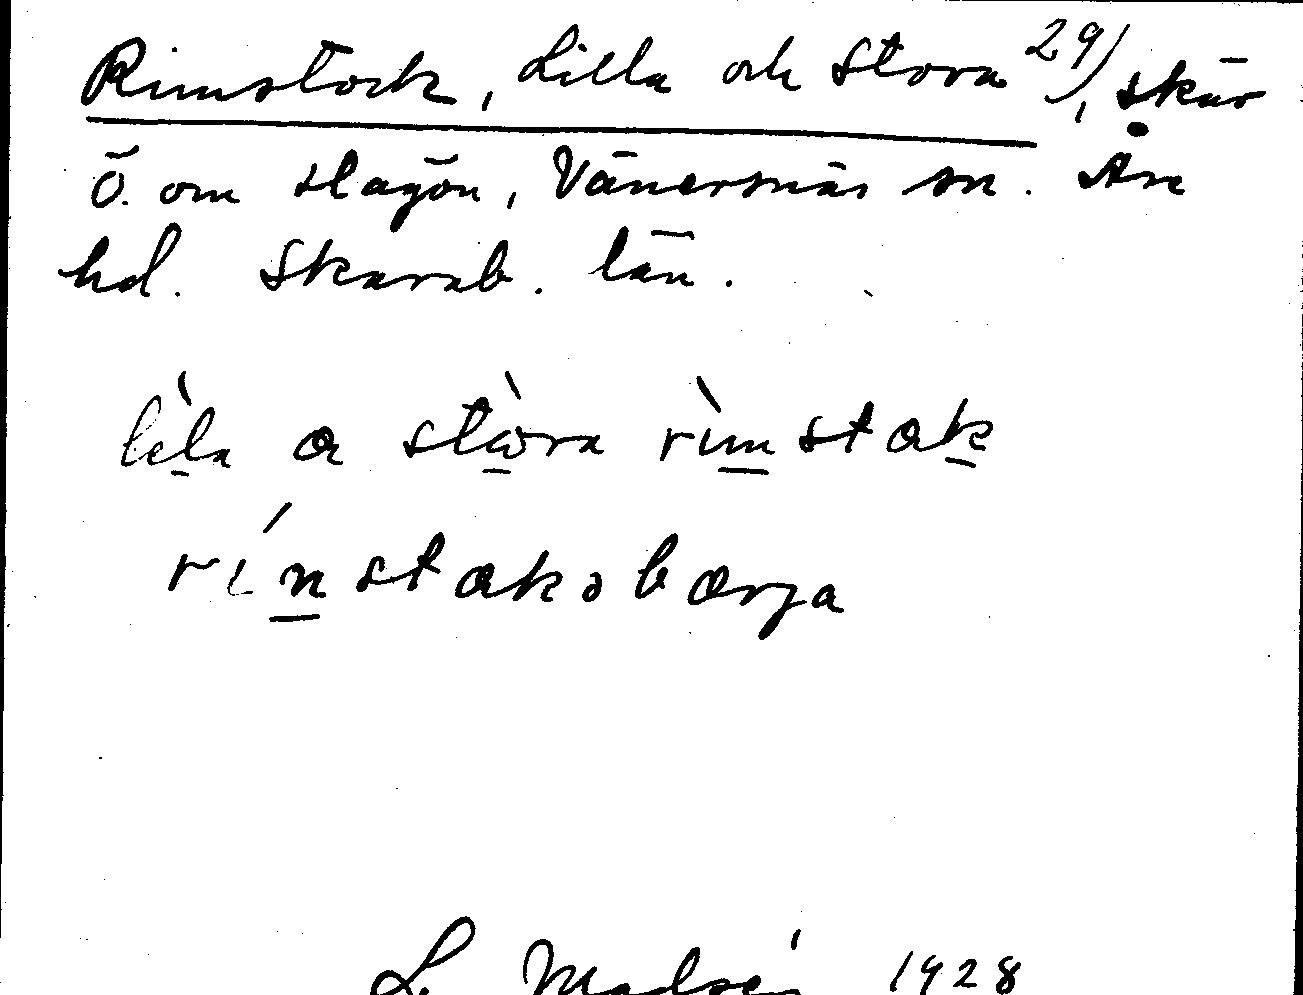 Rimstock, Lilla och Stora 29/, skär
Ö. om Slagön, Vänersnäs sn. Åse
hd. Skarab. län.
lìla a stòra rìmstak
rínstaksbærja
L. Madsén 1928